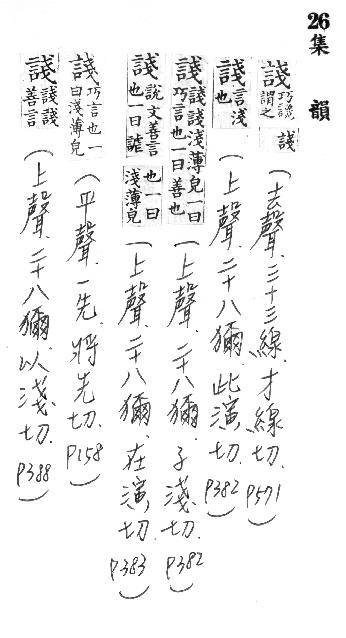 26集 韻
諓巧讒謂之諓
(去聲.三十三線.才線切.P571)
諓言淺也
(上聲.二十八獮.此演切.P382)
諓諓諓淺薄皃一曰巧言也一曰善也
(上聲.二十八獮.子淺切.P382)
諓說文善言也一曰謔也一曰淺薄皃
(上聲.二十八獮.在演切.P383)
諓巧言也一曰淺薄皃
(平聲.一先.將先切.P158)
諓諓諓善言
(上聲.二十八獮.以淺切.P388)